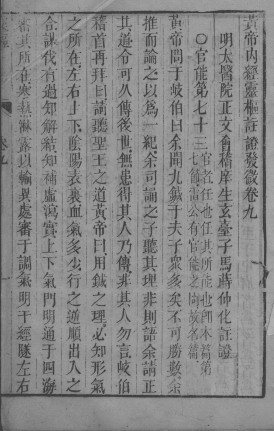 黃帝內經靈樞註證發微卷九
明太醫院正文會稽庠生玄臺子馬蒔仲化註證
○官能第七十三
官者任也任其所能也即本篇第
七節雷公有官能之問故名篇
黃帝問于岐伯曰余聞九鍼于夫子眾多矣不可勝數余
推而論之以為一紀余司誦之子聽其理非則語余請正
其道令可久傳後世無患得其人乃傳非其人勿言岐伯
稽首再拜曰請聽聖王之道黃帝曰用鍼之理必知形氣
之所在左右上下陰陽表裏血氣多少行之逆順出入之
合謀伐有過知解結知補虛瀉實上下氣門明通于四海
審其所在寒熱淋露以輸異處審于調氣明于經隧左右
卷九